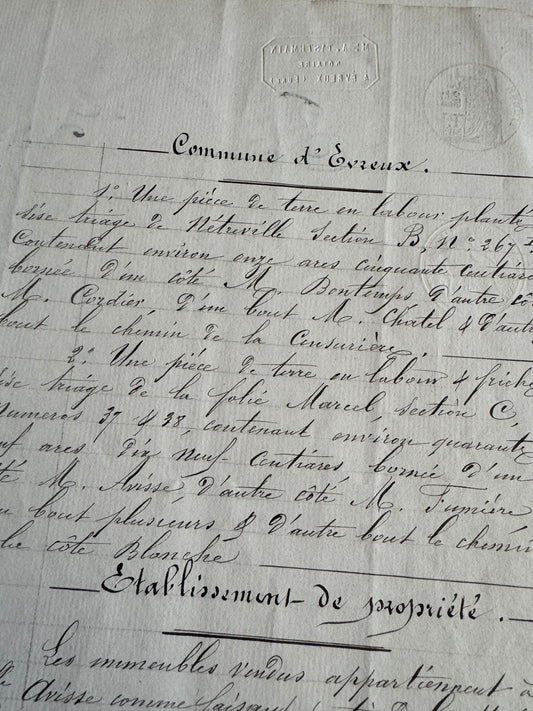 Me A. PASTERMAIN
NOTAIRE
A EVREUX (EURE)
Commune d'Evreux.
1º. Une pièce de terre en labour planté
sise triage de Nétreville Section B, Nº 267
Contenant environ onze ares cinquante centiares
bornée d'un côté M. Bontemps d'autre cô
M. Cordier, d'un bout M. Chatel & d'autr
bout le chemin de la Censurière,
2º Une pièce de terre en labour & friche
sise triage de la folie Marcel, Section C,
Numéros 37 & 38, contenant environ quarante
uf ares dix neuf Centiares, bornée d'un
té M. Avisse, d'autre côté M. Fumière
bout plusieurs & d'autre bout le chemin
côte Blanche
Etablissement de propriété.
Les immeubles vendus appartiennent à
Avisse comme faisant